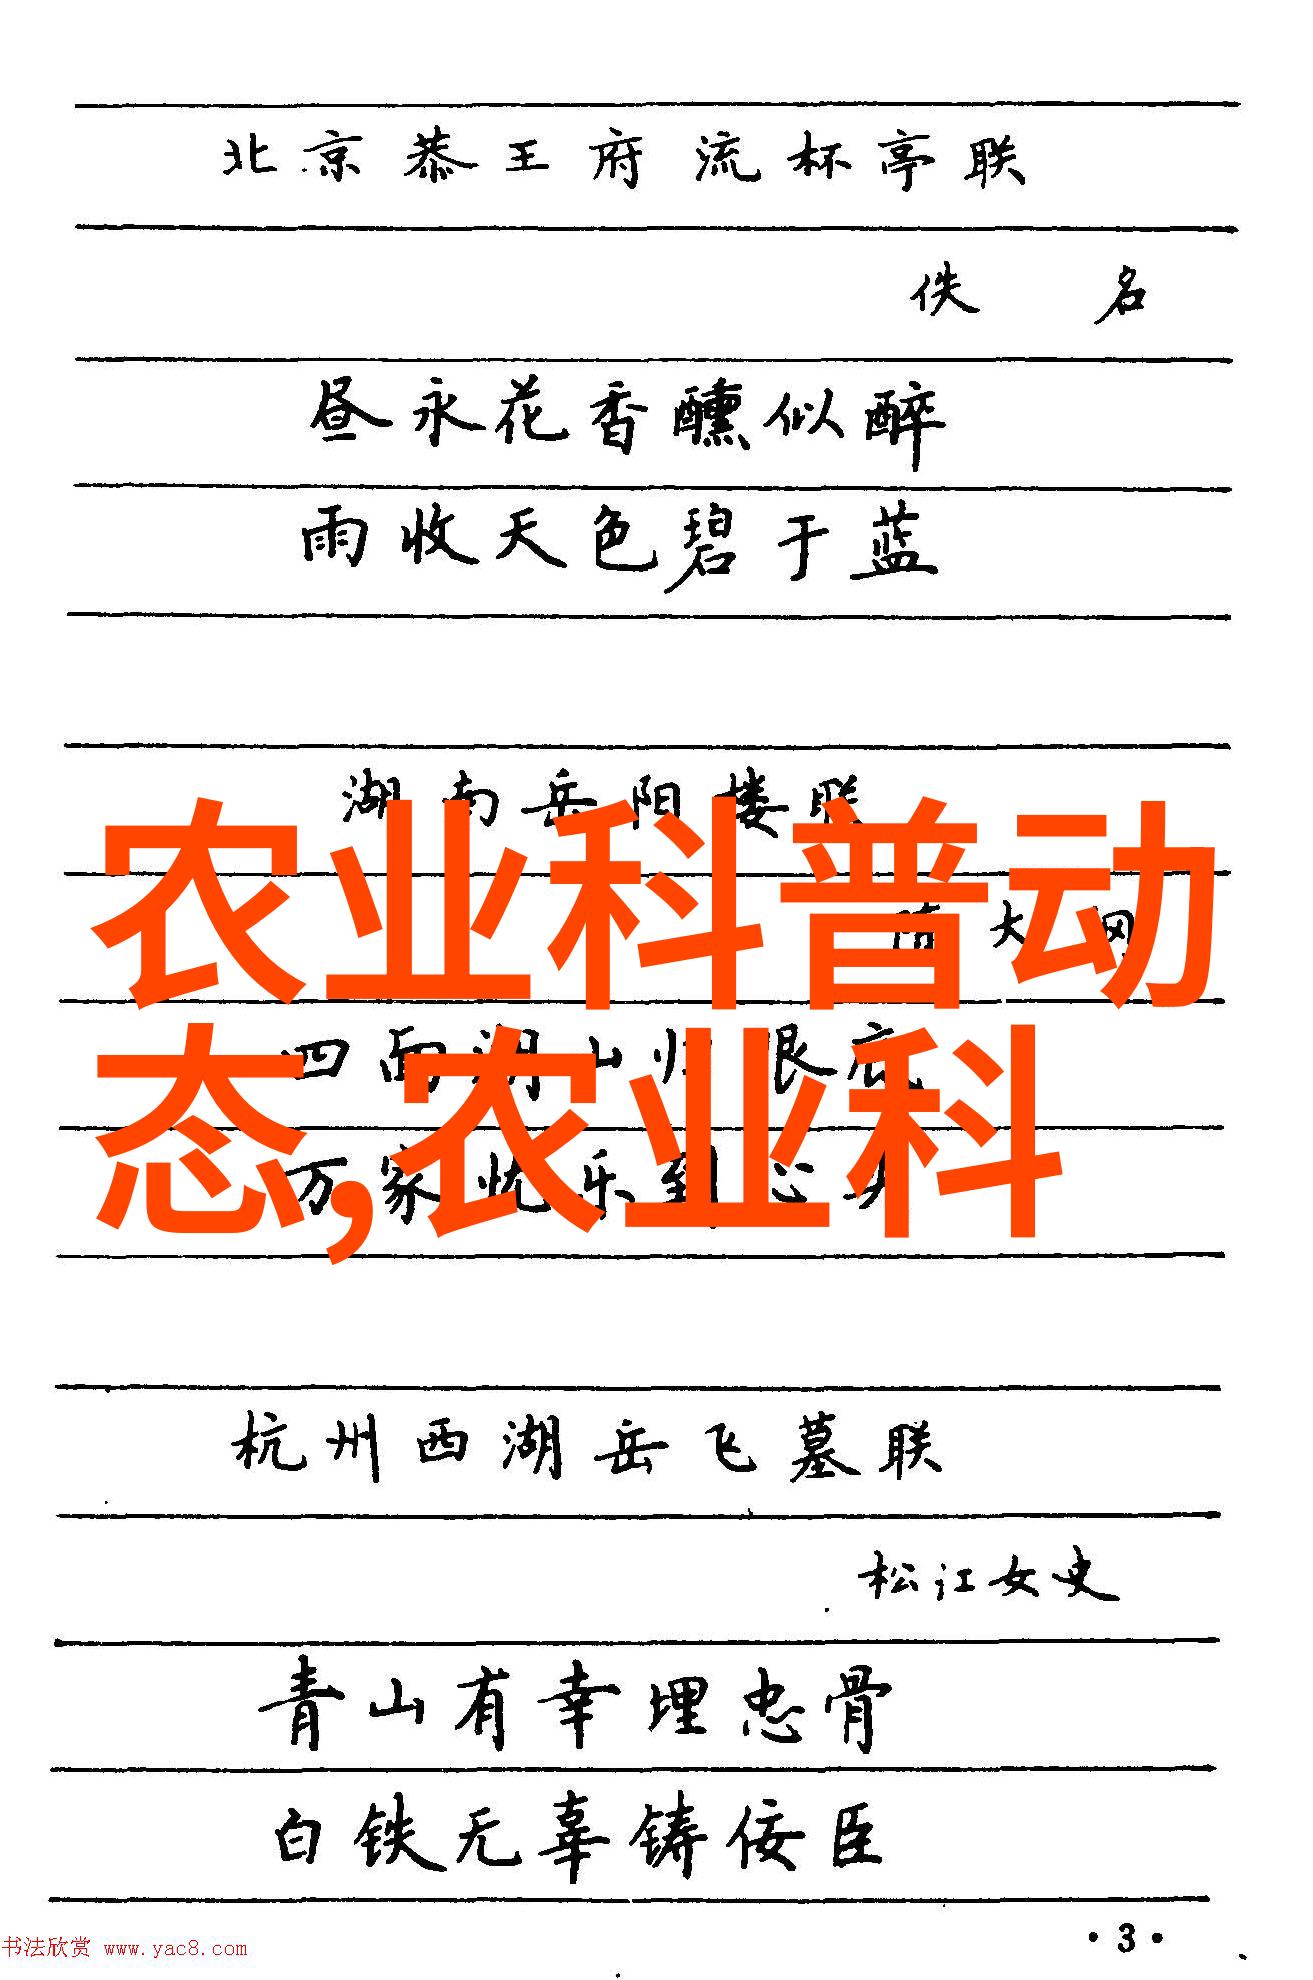 北京恭王府流杯亭联
佚 名
昼永花香醺似醉
雨收天色碧于蓝
湖南岳阳楼联
隋大纲
农业科普动
四面湖山归眼底
态,农业科
万家忧乐到心头
杭州西湖岳飞墓联
松江女史
青山有幸埋忠骨
白铁无辜铸佞臣
·3·
书法欣赏 www.yac8.com